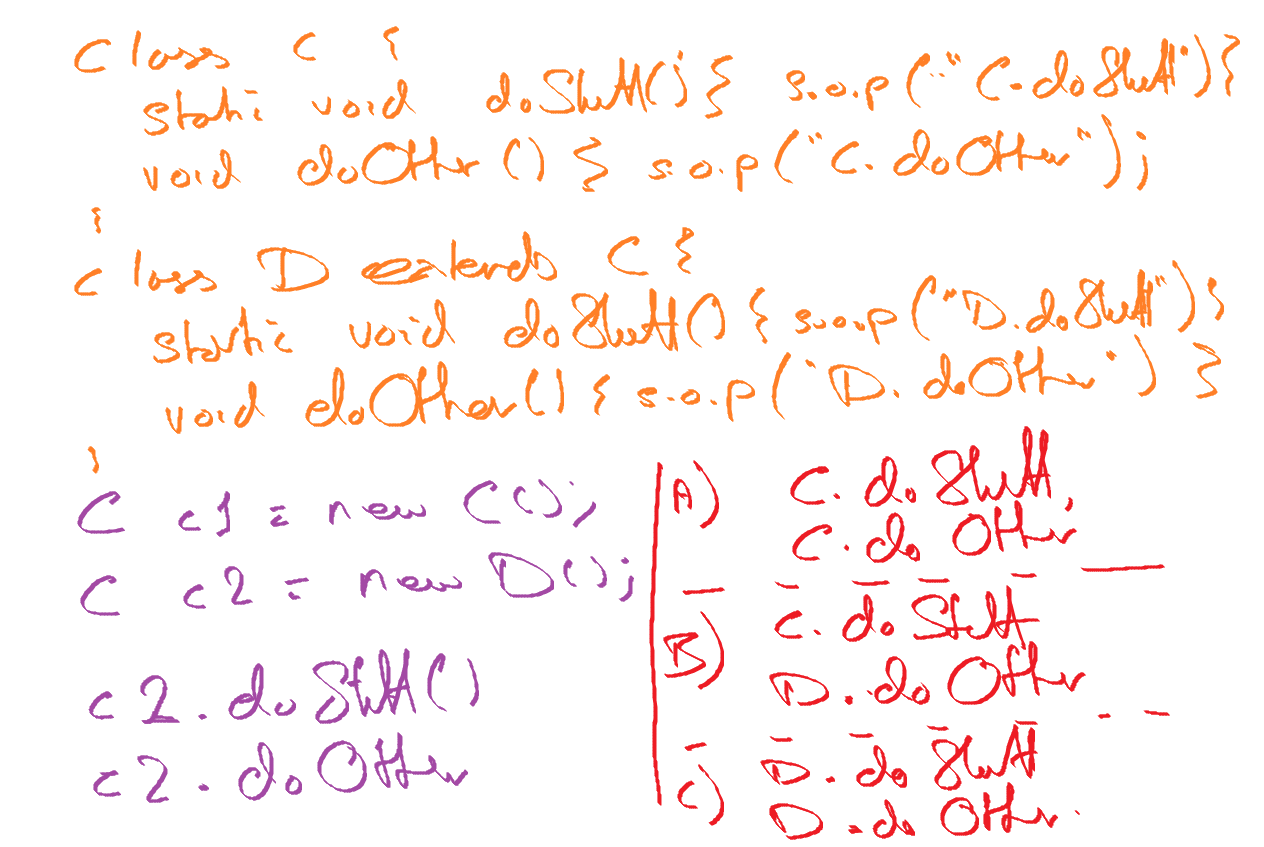 Class C {
static void doStuff(){ s.o.p("C.doStuff")}
void doOther () { s.o.p("C.doOther");
}
class D extends C {
static void doStuff() { s.o.p("D.doStuff")}
void doOther() { s.o.p("D.doOther") }
}
C c1 = new C();
C c2 = new D();
c2.doStuff()
c2.doOther
A) C.doStuff,
C.do Other
B) C.doStuff
D.do Other
C) D.do Stuff
D.do Other.